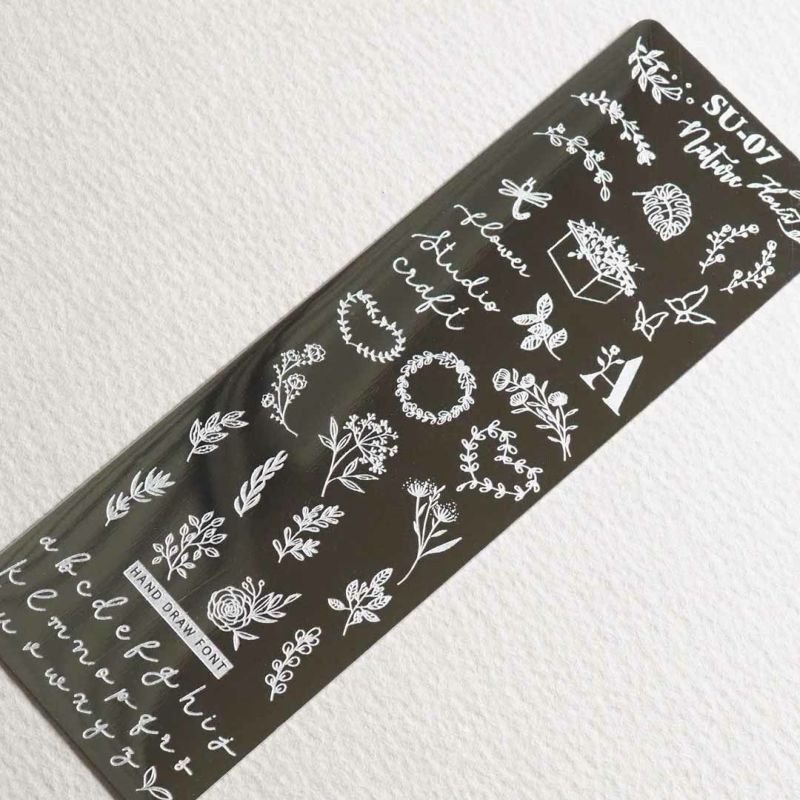 SU-07
Nature
flower
Studio
craft
A
HAND DRAW FONT
a b c d e f g h i j
k l m n o p q r s
u v w x y z